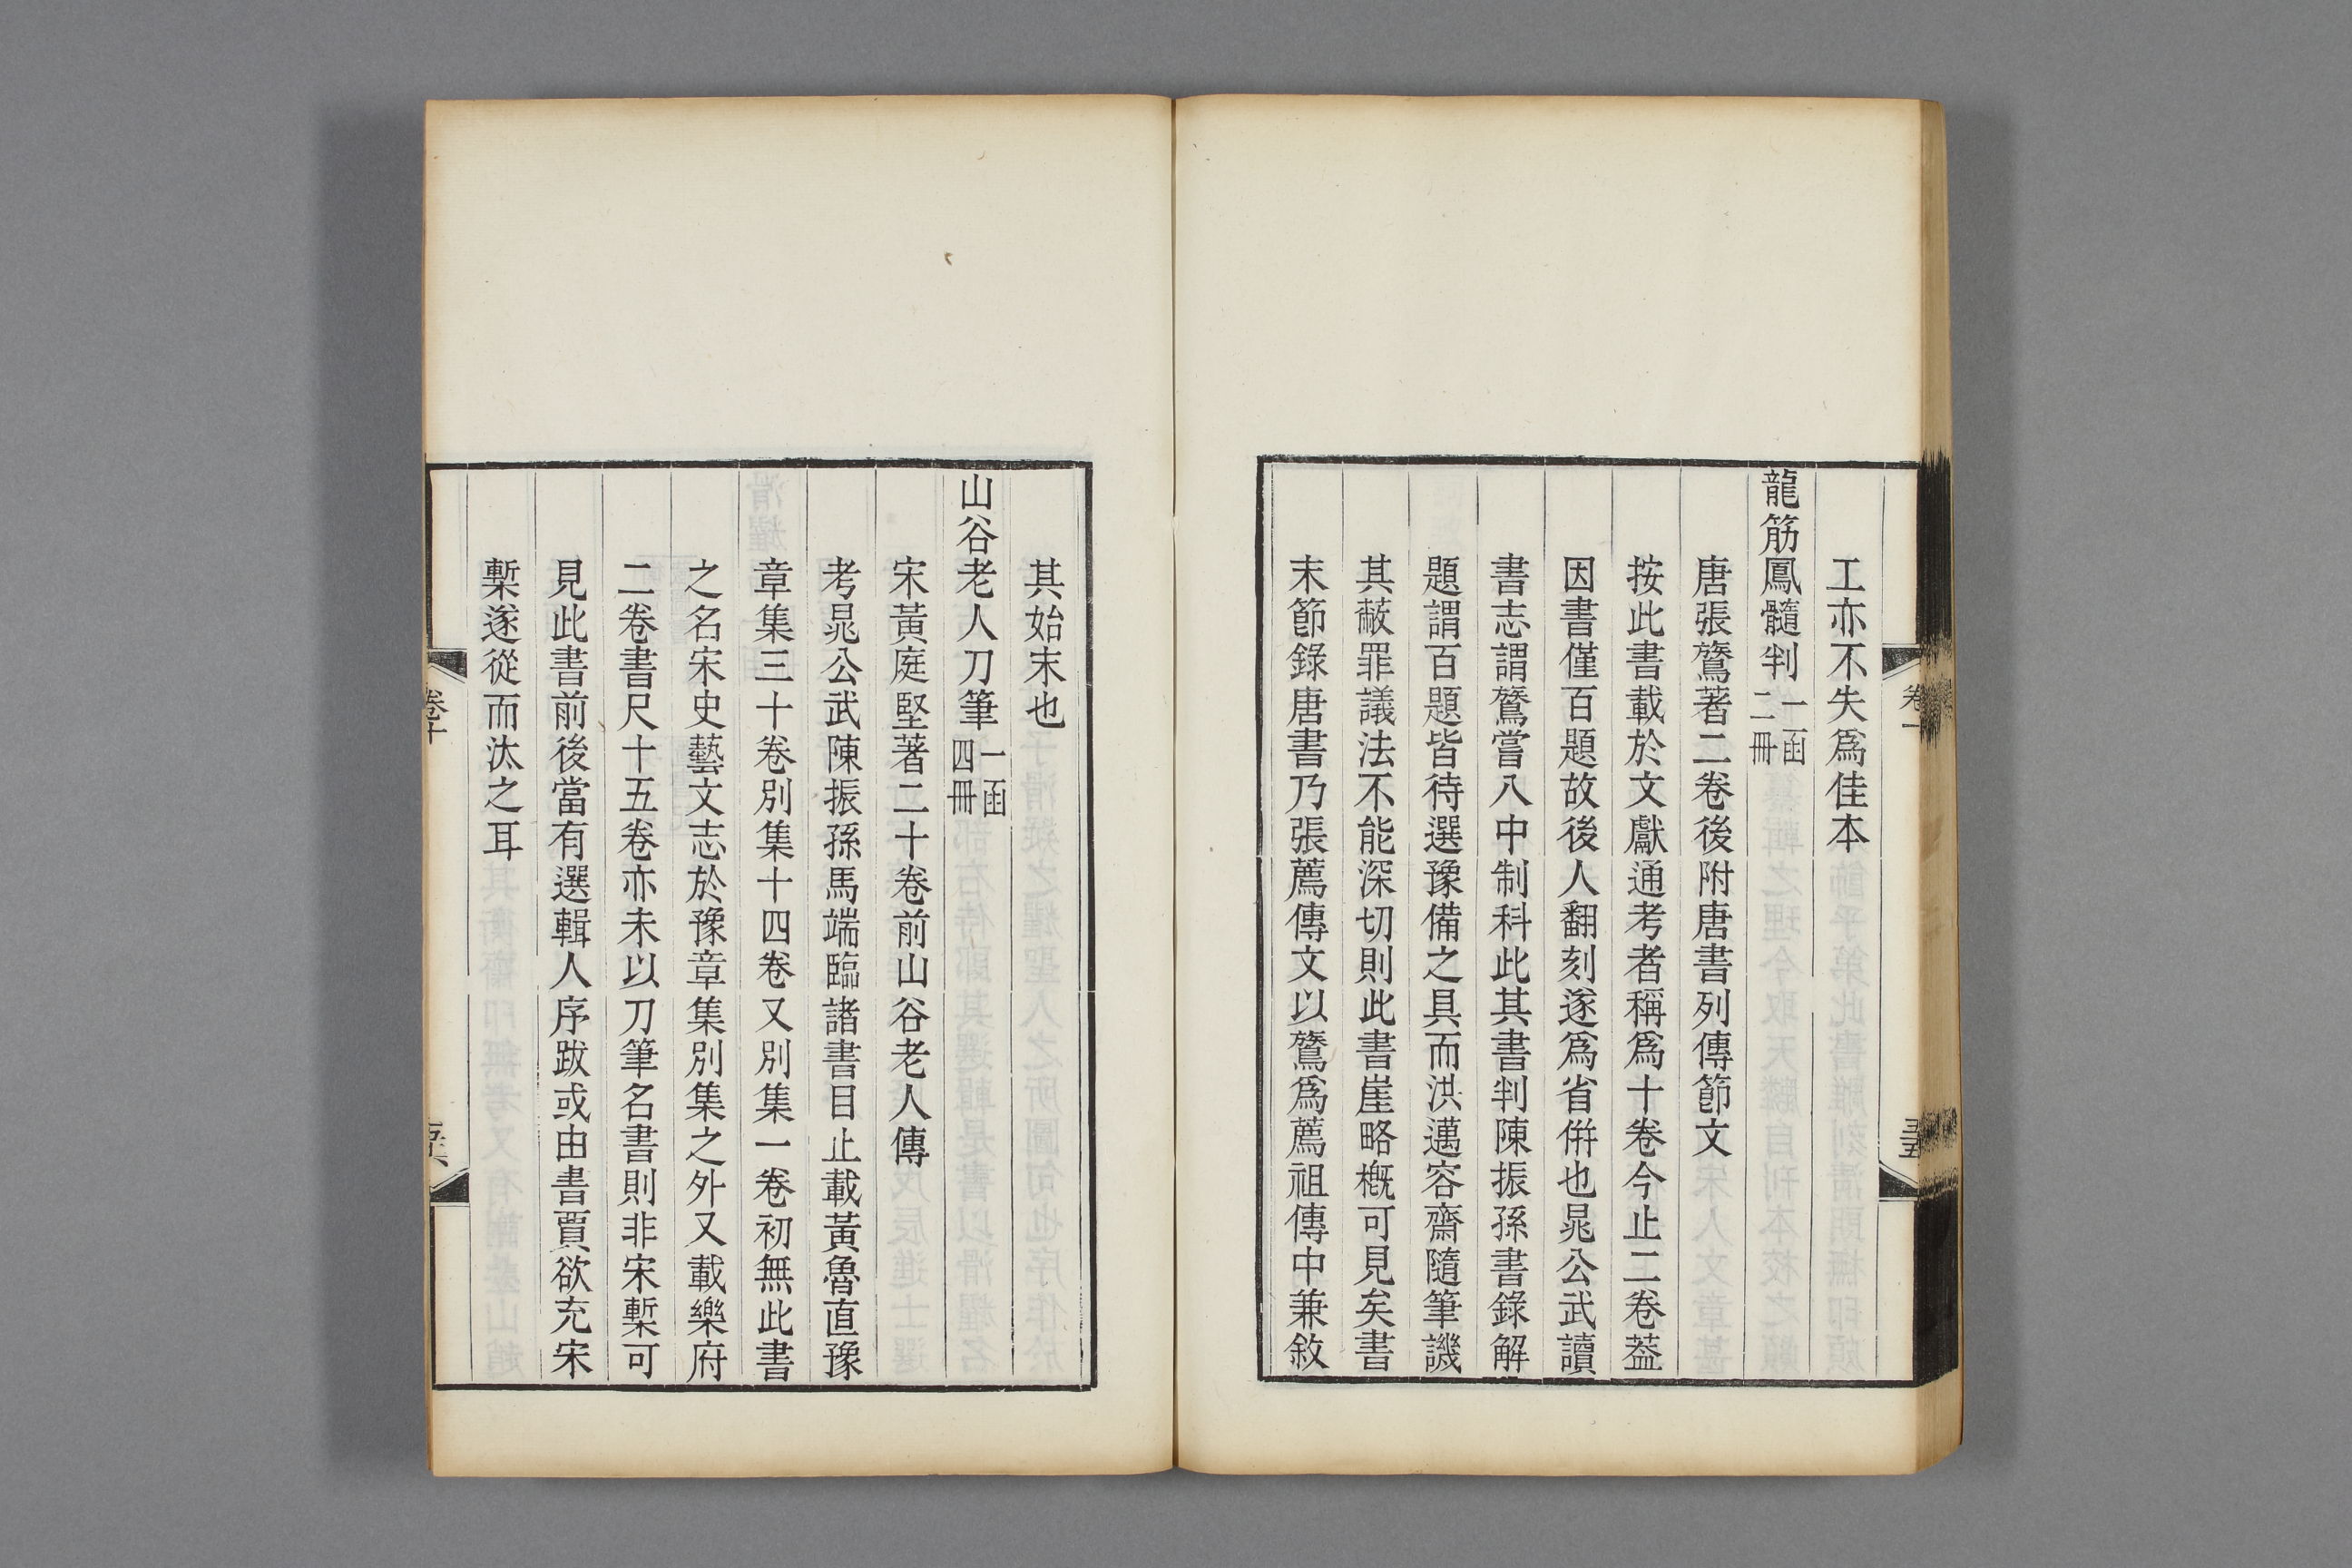 工亦不失爲佳本
龍筋鳳髓判一函二冊
唐張鷟著二卷後附唐書列傳節文
按此書載於文獻通考者稱爲十卷今止二卷葢
因書僅百題故後人翻刻遂爲省倂也晁公武讀
書志謂鷟嘗八中制科此其書判陳振孫書錄解
題謂百題皆待選豫備之具而洪邁容齋隨筆譏
其蔽罪議法不能深切則此書崖略槪可見矣書
末節錄唐書乃張薦傳文以鷟爲薦祖傳中兼敘
其始末也
山谷老人刀筆一函四冊
宋黃庭堅著二十卷前山谷老人傳
考晁公武陳振孫馬端臨諸書目止載黃魯直豫
章集三十卷別集十四卷又別集一卷初無此書
之名宋史藝文志於豫章集別集之外又載樂府
二卷書尺十五卷亦未以刀筆名書則非宋槧可
見此書前後當有選輯人序跋或由書賈欲充宋
槧遂從而汰之耳
卷十